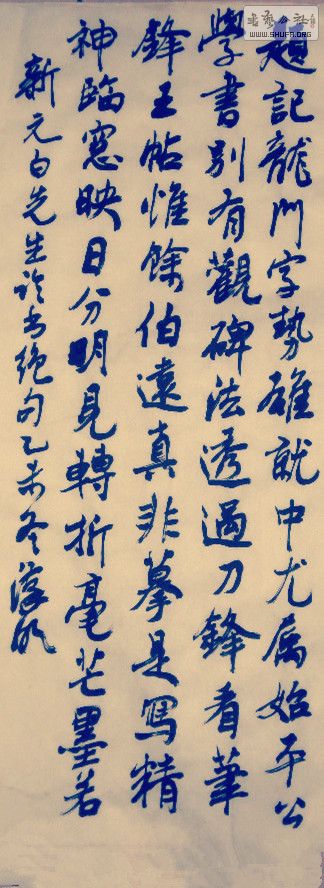 題記龍門字勢雄就中尤属始平公
學書別有觀碑法透過刀鋒看筆
鋒王帖惟餘伯遠真非摹是寫精
神臨窓映日分明見轉折毫芒墨若
新元白先生论书绝句乙未冬
书艺公社
WWW.SHUFA.ORG